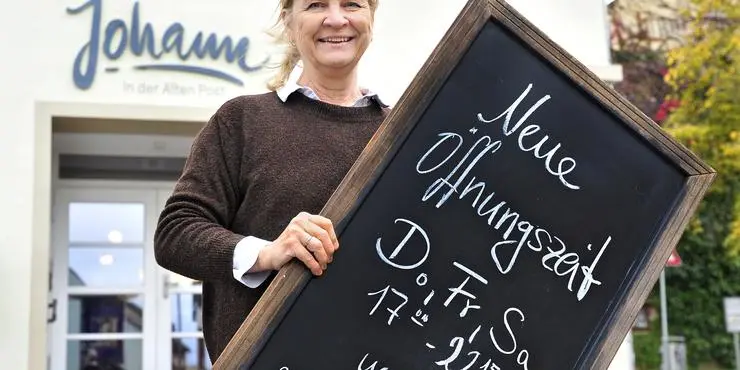 Johann
In der Alten Post
Neue
Öffnungszeit
Do, Fr, Sa
17⁰⁰